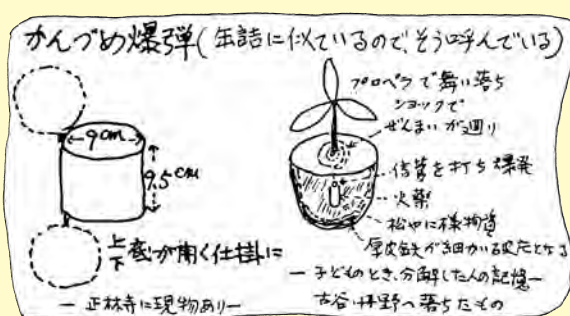 かんづめ爆弾(缶詰に似ているので、そう呼んでいる)
9cm
9.5cm
上下 底が開く仕掛に
― 正林寺に現物あり―
プロペラで舞い落ち
ショックで
ぜんまいが廻り
信管を打ち爆発
火薬
松やに様物質
厚皮鉄が細かい破片となる
― 子どものとき、分解した人の記憶―
古谷・林野へ落ちたもの